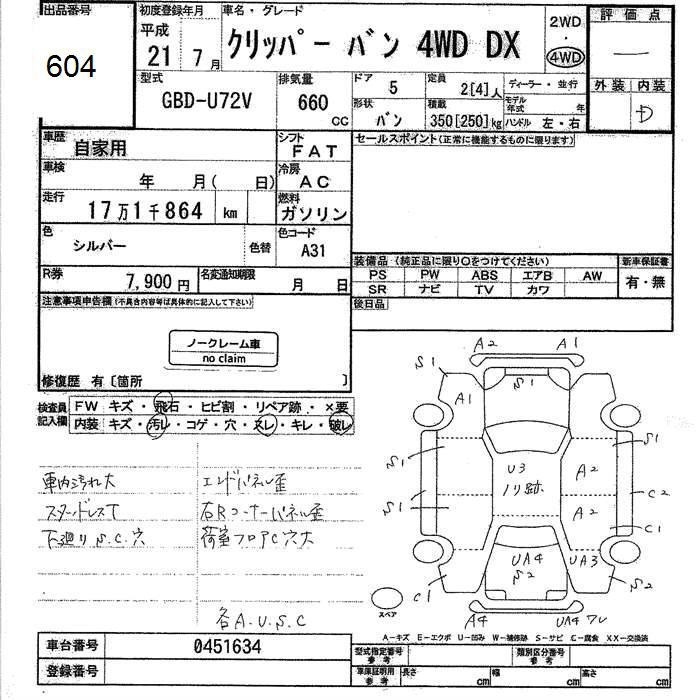 出品番号
604
初度登録年月
平成
21 7月
車名・グレード
クリッパー バン 4WD DX
2WD
・
4WD
評価点
—
外装 内装
D
型式
GBD-U72V
排気量
660
CC
ドア
5
定員
2[4]人
ディーラー・並行
形状
バン
積載
350[250]kg
モデル年式 年
ハンドル 左・右
車歴
自家用
シフト
FAT
セールスポイント(正常に機能するものに限ります)
車検
年 月( 日)
冷房
AC
走行
17万1千864 km
燃料
ガソリン
色
シルバー
色替
色コード
A31
装備品(純正品に限り○をつけてください)
PS PW ABS エアB AW
SR ナビ TV カワ
新車保証書
有・無
R券
7,900円
名変通知期限
月 日
後日品
注意事項申告欄(不具合内容等は具体的に記入して下さい)
ノークレーム車
no claim
修復歴 有〔箇所 〕
検査員
記入欄
FW キズ・飛石・ヒビ割・リペア跡・×要
内装 キズ・汚レ・コゲ・穴・スレ・キレ・破レ
車内汚れ大 エンドパネル歪
スタッドレスT 右Rコーナーパネル歪
下廻りS.C.穴 荷室フロアC穴大
各A.U.S.C
A2 A1
S1 S1
A1
S1 S1
U3 A2
ノリ跡
C2
S1 A2
C1
UA4 UA3
S2
C1 S2
スペア
A4 UA4 ワレ
A-キズ E-エクボ U-凹み W-補修跡 S-サビ C-腐食 XX-交換済
車台番号
0451634
登録番号
型式指定番号
参考
類別区分番号
参考
車庫証明用
参考
長さ cm
幅 cm
高さ cm